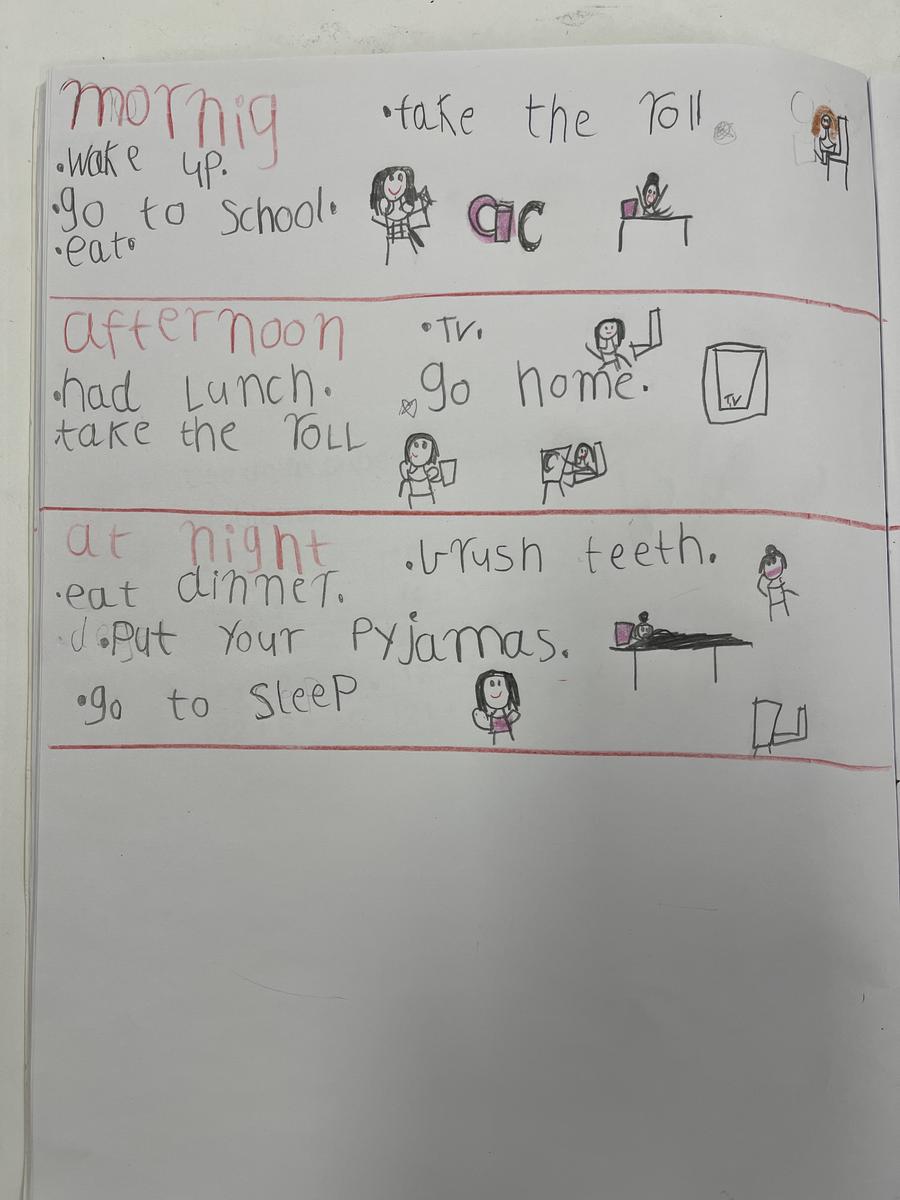 mornig
•wake up.
•go to school.
•eat.
•take the roll
afternoon
•had Lunch.
take the roLL
•TV.
go home.
TV
at night
•eat dinner.
d •Put Your PyJamas.
•go to SleeP
•brush teeth.